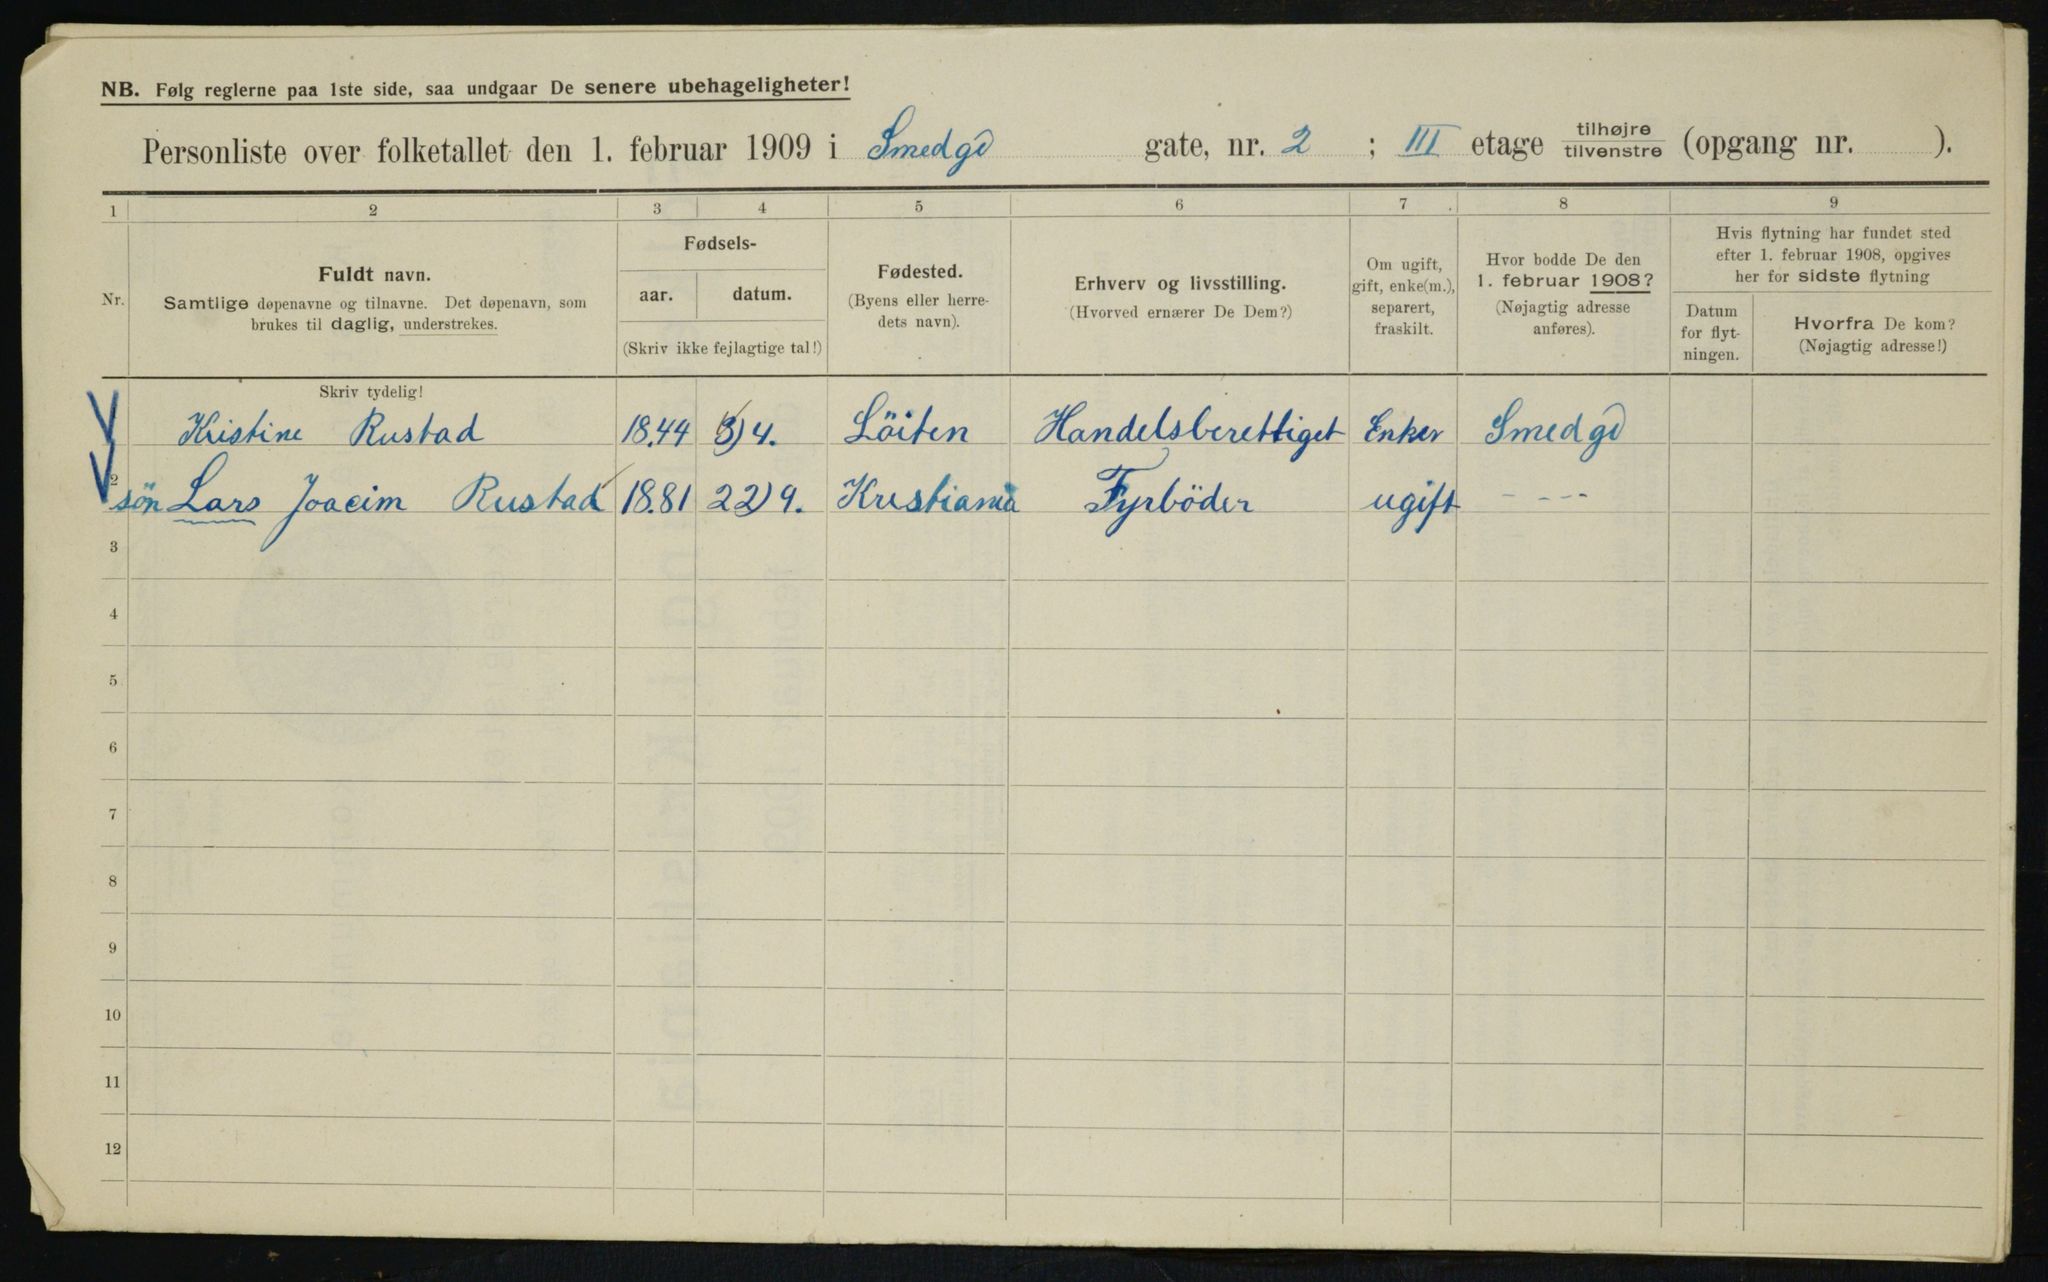 NB. Følg reglerne paa 1ste side, saa undgaar De senere ubehageligheter!
Personliste over folketallet den 1. februar 1909 i Smedgd gate, nr. 2 ; III etage tilhøjre tilvenstre (opgang nr. ).
1 2 3 4 5 6 7 8 9
Nr.
Fuldt navn.
Samtlige døpenavne og tilnavne. Det døpenavn, som
brukes til daglig, understrekes.
Fødsels-
aar. datum.
(Skriv ikke fejlagtige tal!)
Fødested.
(Byens eller herre-
dets navn).
Erhverv og livsstilling.
(Hvorved ernærer De Dem?)
Om ugift,
gift, enke(m.),
separert,
fraskilt.
Hvor bodde De den
1. februar 1908?
(Nøjagtig adresse
anføres).
Hvis flytning har fundet sted
efter 1. februar 1908, opgives
her for sidste flytning
Datum
for flyt-
ningen.
Hvorfra De kom?
(Nøjagtig adresse!)
Skriv tydelig!
Kristine Rustad 18.44 3/4. Löiten Handelsberettiget Enker Smedgd
2 sön Lars Joacim Rustad 18.81 22/9. Kristiania Fyrböder ugift - - - -
3
4
5
6
7
8
9
10
11
12